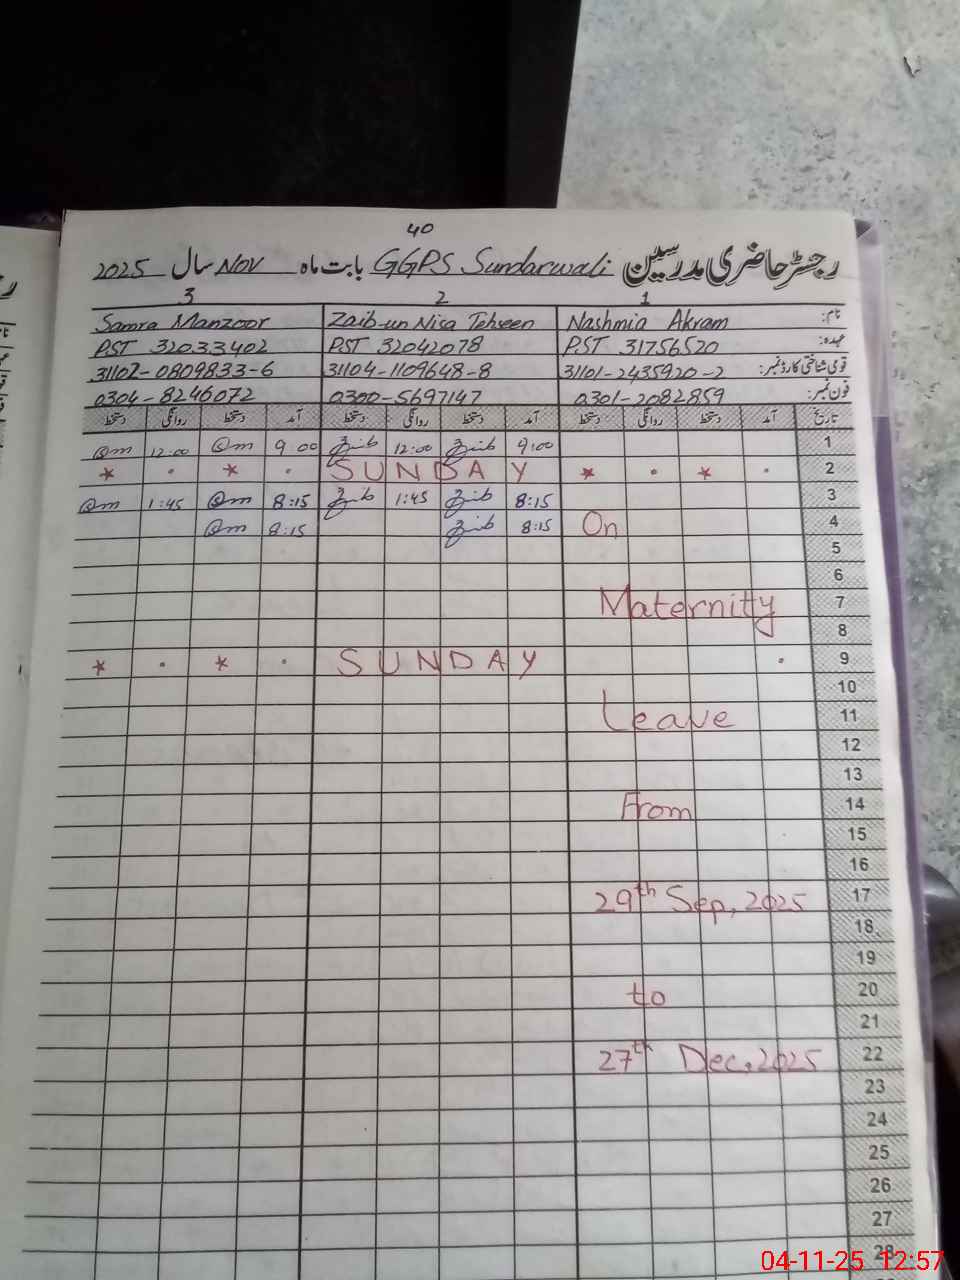 40
رجسٹر حاضری مدرسین GGPS Sundarwali بابت ماہ Nov سال 2025
3 2 1
نام: Nashmia Akram Zaib-un Nisa Tehseen Samra Manzoor
عہدہ: PST 31756520 PST 32042078 PST 32033402
قومی شناختی کارڈ نمبر: 31101-2435920-2 31104-1109648-8 31102-0809833-6
فون نمبر: 0301-2082859 0300-5697147 0304-8246072
تاریخ آمد دستخط روانگی دستخط آمد دستخط روانگی دستخط آمد دستخط روانگی دستخط
1 9:00 زیب 12:00 زیب 9 00 @m 12:00 @m
2 SUNDAY
3 8:15 زیب 1:45 زیب 8:15 @m 1:45 @m
4 On 8:15 زیب 8:15 @m
5
6
7 Maternity
8
9 SUNDAY
10
11 Leave
12
13
14 From
15
16
17 29th Sep, 2025
18
19
20 to
21
22 27th Dec, 2025
23
24
25
26
27
28
04-11-25 12:57